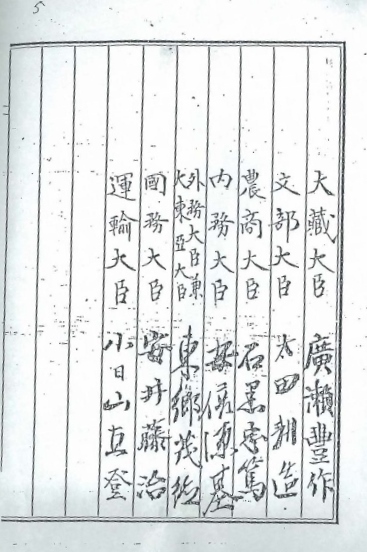 5
大藏大臣 廣瀨豐作
文部大臣 太田耕造
農商大臣 石黑忠篤
内務大臣 安倍源基
外務大臣兼
大東亞大臣 東鄕茂德
國務大臣 安井藤治
運輸大臣 小日山直登